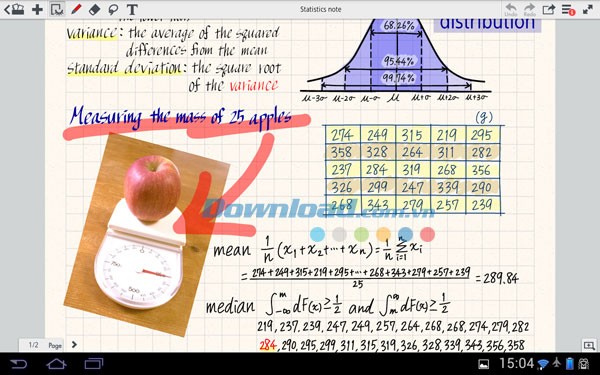 Statistics note
variance: the average of the squared
differences from the mean
standard deviation: the square root
of the variance
distribution
68.26%
95.44%
99.74%
μ-3σ μ-2σ μ-σ μ μ+σ μ+2σ μ+3σ
Measuring the mass of 25 apples
(g)
274 249 315 219 295
358 328 264 311 282
237 284 319 268 356
326 299 247 339 290
268 343 279 257 239
Download.com.vn
mean 1/n (x1+x2+…+xn) = 1/n Σ i=1 n xi
= 274+249+315+219+295+…+268+343+279+257+239 / 25 = 289.84
median ∫-∞ m dF(x) ≥ 1/2 and ∫m ∞ dF(x) ≥ 1/2
219, 237, 239, 247, 249, 257, 264, 268, 268, 274, 279, 282
284, 290, 295, 299, 311, 315, 319, 326, 328, 339, 343, 356, 358
1/2 Page
15:04